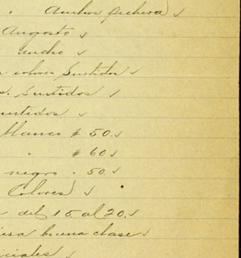 " Ancha pechera) ✓
Angosto ✓
Ancho ✓
colores Surtidos ✓
Surtidos ✓
Surtidos ✓
blanco # 50 ✓
" # 60 ✓
negro " 50 ✓
Colores) ✓
del 15 al 20 ✓
buena clase ✓